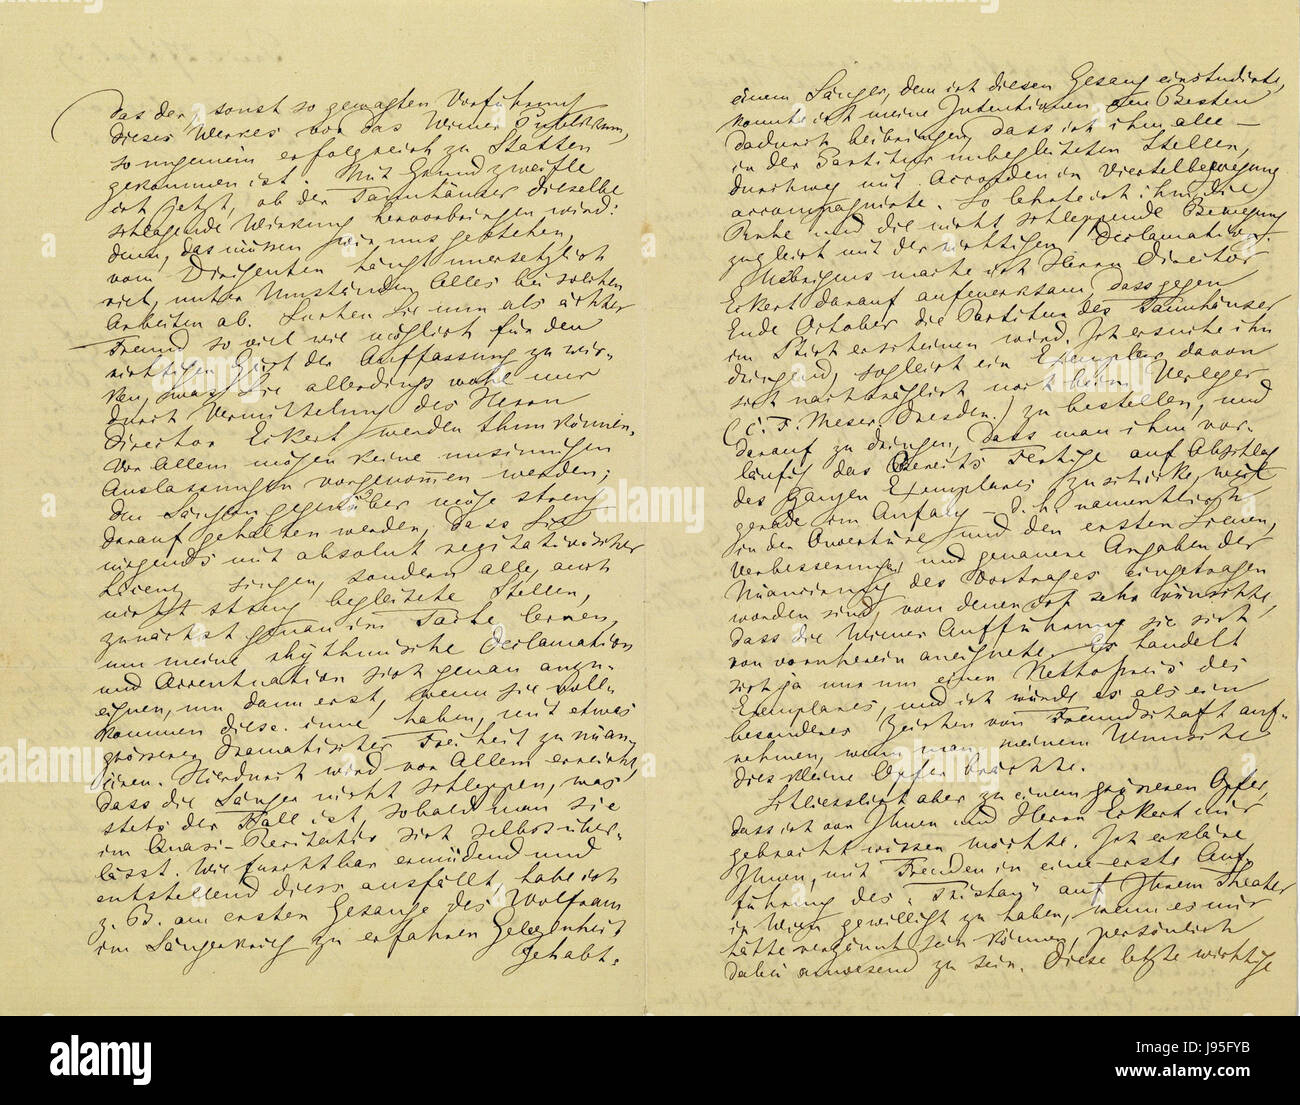 das der, sonst so gewagten Vorführung
dieses Werkes vor das Wiener Publikum,
so ungemein erfolgreich zu Statten
gekommen ist. Mit Grund zweifle
ich jetzt, ob der Tannhäuser dieselbe
schlagende Wirkung hervorbringen wird:
denn, das müssen wir uns gestehen,
vom Dirigenten hängt unersetzlich
viel, unter Umständen Alles bei solchen
Arbeiten ab. Suchen Sie nun als ächter
Freund so viel wie möglich für den
richtigen Geist der Auffassung zu wir-
ken, was Sie allerdings wohl nur
durch Vermittelung des Herrn
Director Eckert werden thun können.
Vor Allem mögen keine unsinnigen
Auslassungen vorgenommen werden;
den Sängern gegenüber möge streng
darauf gehalten werden, dass sie
nirgends mit absolut rezitativischer
Licenz singen, sondern alle, auch
nicht streng begleitete Stellen,
zunächst genau im Takte lernen,
um meine rhythmische Declamation
und Accentuation sich genau anzu-
eignen, um dann erst, wenn sie voll-
kommen diese inne haben, mit etwas
grösserer dramatischer Freiheit zu nüan-
ciren. Hierdurch wird vor Allem erreicht,
dass die Sänger nicht schleppen, was
stets der Fall ist, sobald man sie
im Quasi-Recitativ sich selbst über-
lässt. Wie furchtbar ermüdend und
entstellend diess ausfällt, habe ich
z. B. am ersten Gesange des Wolfram
im Sängerkrieg zu erfahren Gelegenheit
gehabt.
einem Sänger, dem ich diesen Gesang einstudirte,
konnte ich meine Intentionen am Besten
dadurch beibringen, dass ich ihm alle –
in der Partitur unbegleiteten Stellen,
durchweg mit Accorden in Viertelbewegung
accompagnirte. So lehrte ich ihm die
Ruhe und die nicht schleppende Bewegung
zugleich mit der richtigen Declamation.
Uebrigens mache ich Herrn Director
Eckert darauf aufmerksam, dass gegen
Ende October die Partitur des Tannhäuser
im Stich erscheinen wird. Ich ersuche ihn
dringend, sogleich ein Exemplar davon
sich nachträglich noch beim Verleger
(C. F. Meser. Dresden.) zu bestellen, und
darauf zu dringen, dass man ihm vor-
läufig das Bereits Fertige auf Abschlag
des ganzen Exemplares zuschicke, weil
gerade im Anfang – d. h. namentlich
in der Ouvertüre und den ersten Scenen,
Verbesserungen und genauere Angaben der
Nüancirung des Vortrages eingetragen
worden sind, von denen ich sehr wünschte,
dass die Wiener Aufführung sie sich
von vornherein aneignete. Es handelt
sich ja nur um einen Nettopreis des
Exemplares, und ich würde es als ein
besonderes Zeichen von Freundschaft auf-
nehmen, wenn man meinem Wunsche
dies kleine Opfer brächte.
Schliesslich aber zu einem grösseren Opfer,
dass ich von Ihnen und Herrn Eckert mir
gebracht wissen möchte. Ich erkläre
Ihnen, mit Freuden in eine erste Auf-
führung des „Tristan" auf Ihrem Theater
in Wien gewilligt zu haben, wenn es mir
hätte vergönnt sein können, persönlich
dabei anwesend zu sein. Diese letzte wichtige
alamy
alamy stock photo
Image ID: J95FYB
www.alamy.com